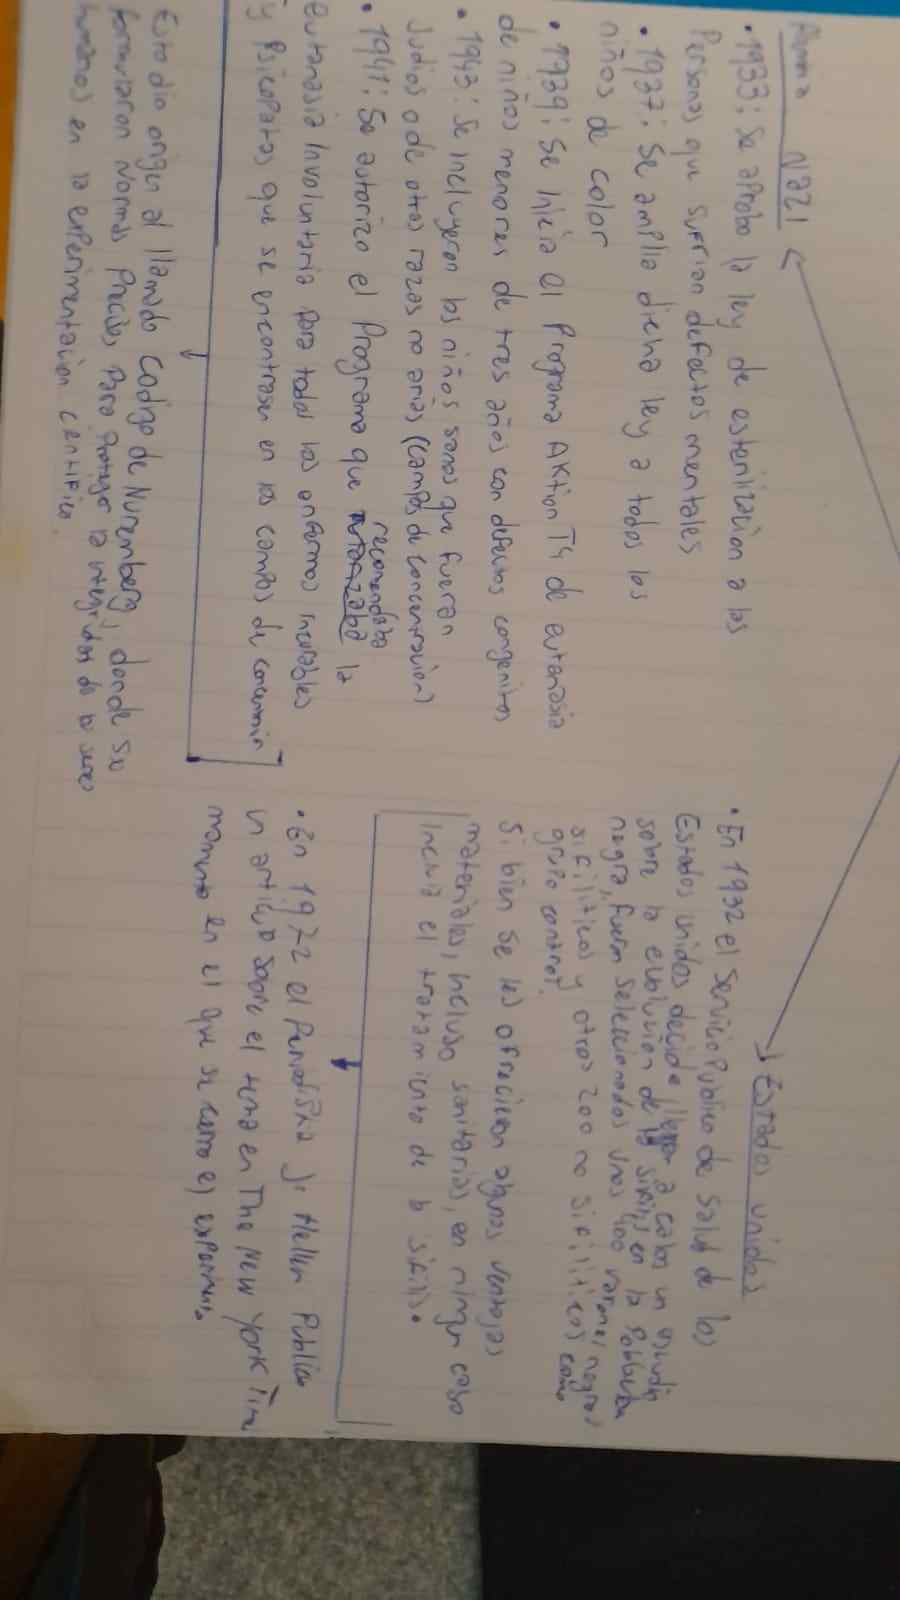 Nazi
• 1933: Se aprobo la ley de esterilización a las
Personas que sufrian defectos mentales
• 1937: Se amplia dicha ley a todos los
niños de color
• 1939: Se inicia el Programa AKtion T4 de eutanasia
de niños menores de tres años con defectos congenitos
• 1943: Se incluyeron los niños sanos que fueran
Judios o de otras razas no arias (campos de concentracion)
• 1941: Se autorizo el Programa que recomendaba la
eutanasia involuntaria Para todos los enfermos incurables
y Psicopatas que se encontrasen en los campos de
Esto dio origen al llamado Codigo de Nuremberg, donde se
formularon Normas Precisas Para Proteger la integridad de los seres
humanos en la experimentacion cientifica.
Estados unidos
• En 1932 el Servicio Publico de Salud de los
Estados unidos decide llevar a cabo un estudio
sobre la evolución de la sifilis en la Poblacion
negra, fueron seleccionados unos 400 varones negros
sifiliticos y otros 200 no sifiliticos como
grupo control.
Si bien se les ofrecieron algunas ventajas
materiales, incluso sanitarias, en ningun caso
incluia el tratamiento de la sifilis.
• En 1972 el Periodista J. Heller Publica
un articulo sobre el tema en The New York
momento en el que se cierra el experimento